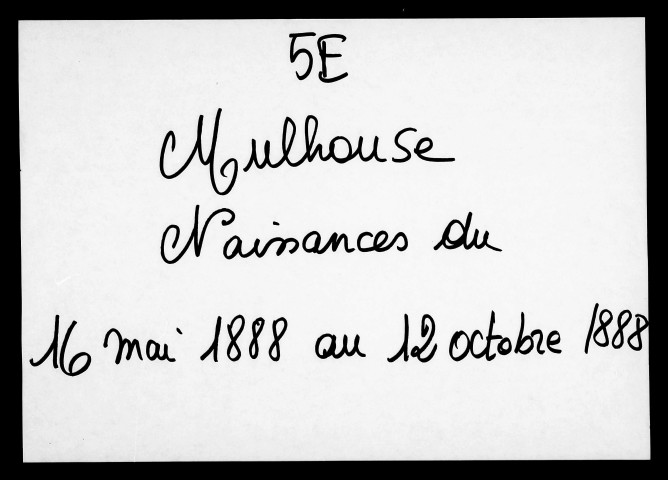 5E
Mulhouse
Naissances du
16 mai 1888 au 12 octobre 1888